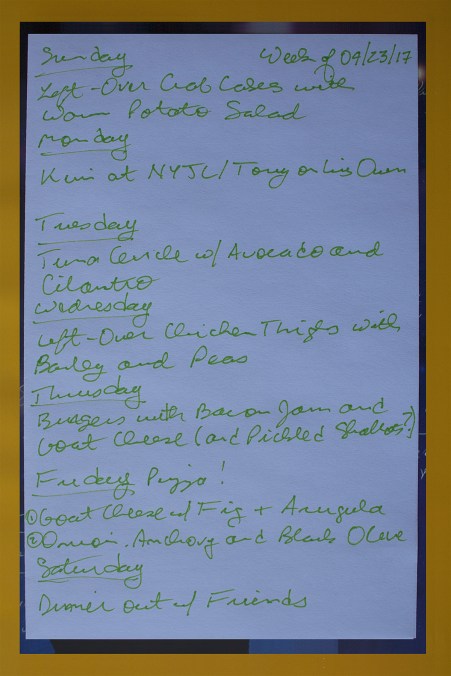 Sunday Week of 09/23/17
Left-Over Crab Cakes with
Warm Potato Salad
Monday
Kim at NYJL/Tony on his Own
Tuesday
Tuna Ceviche w/ Avocado and
Cilantro
Wednesday
Left-Over Chicken Thighs with
Barley and Peas
Thursday
Burgers with Bacon Jam and
Goat Cheese (and Pickled Shallots?)
Friday Pizza!
① Goat Cheese w/ Fig + Arugula
② Onion, Anchovy and Black Olive
Saturday
Dinner out w/ Friends